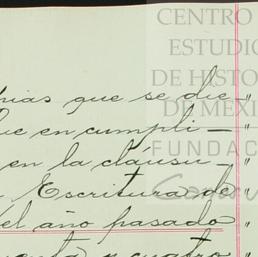 CENTRO
ESTUDIO
DE HISTO
DE MÉXI
FUNDAC
nias que se die-"
que en cumpli-"
en la cláusu-"
Escritura de
el año pasado "
y cuatro